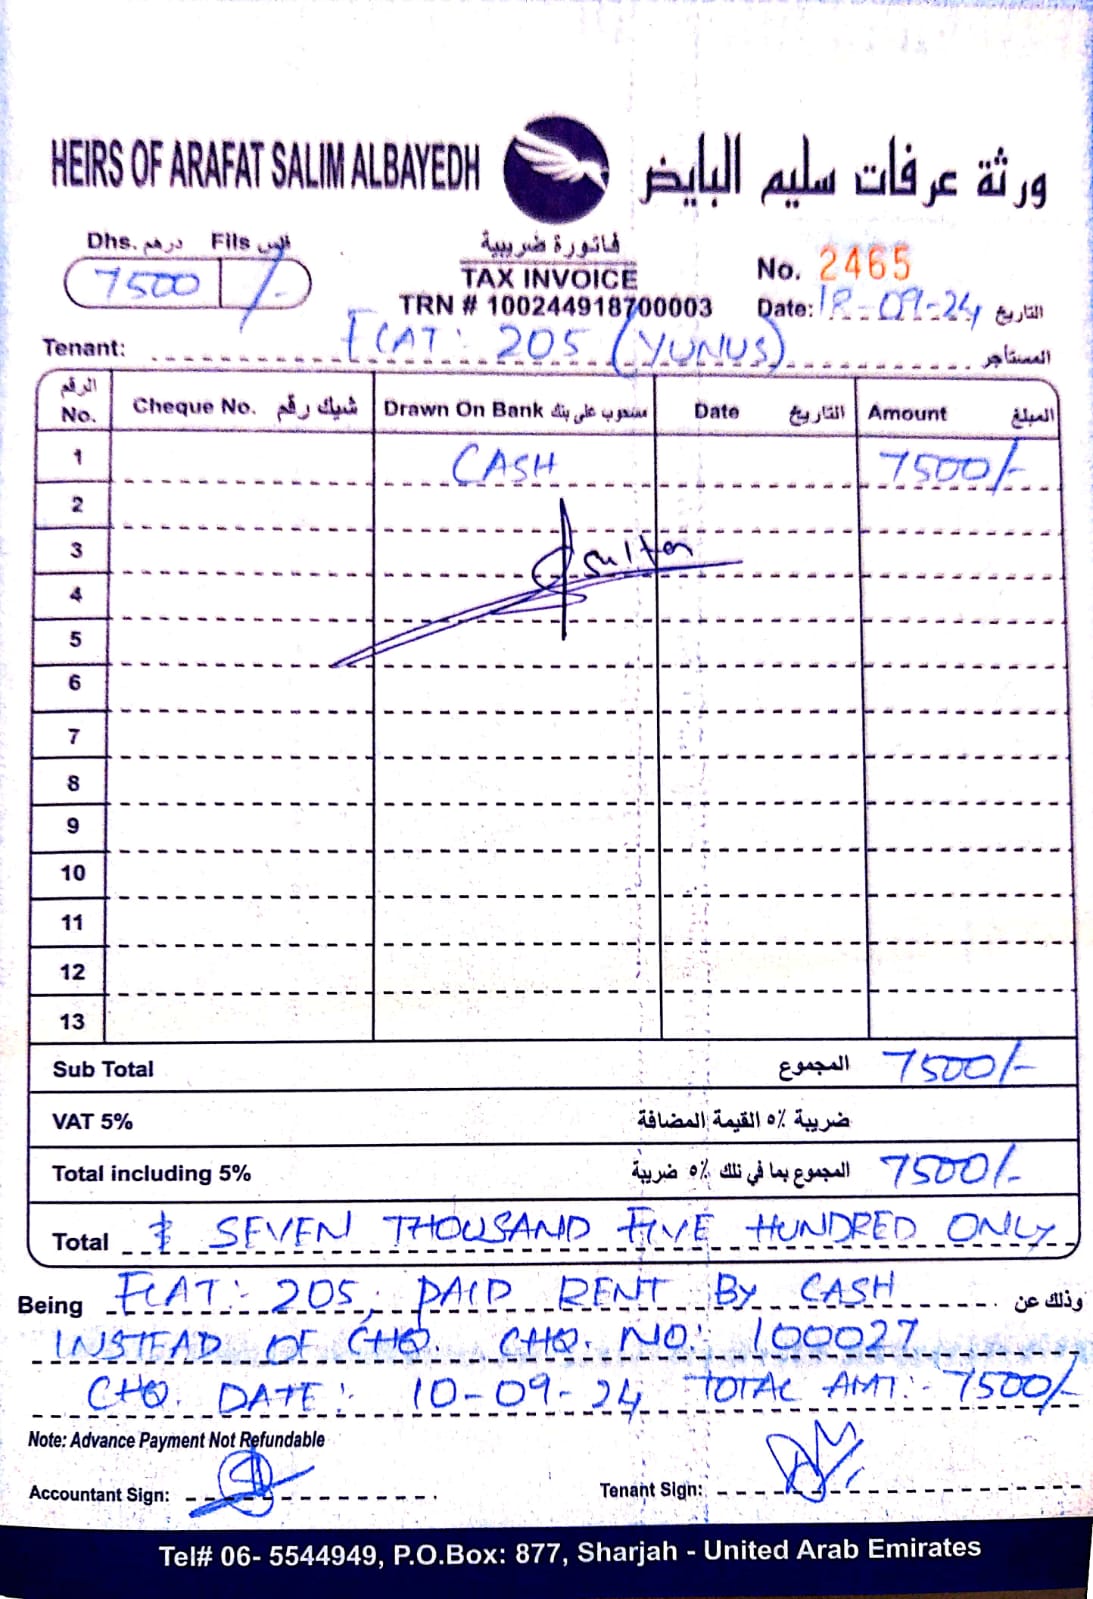 HEIRS OF ARAFAT SALIM ALBAYEDH ورثة عرفات سليم البايض
Dhs. درهم Fils فلس
7500 /-
فاتورة ضريبية
TAX INVOICE
TRN # 100244918700003
No. 2465
Date: 18-09-24 التاريخ
Tenant: FLAT: 205 (YUNUS) المستأجر
الرقم No. Cheque No. شيك رقم Drawn On Bank مسحوب على بنك Date التاريخ Amount المبلغ
1 CASH 7500/-
2
3 sultan
4
5
6
7
8
9
10
11
12
13
Sub Total المجموع 7500/-
VAT 5% ضريبة ٥٪ القيمة المضافة
Total including 5% المجموع بما في تلك ٥٪ ضريبة 7500/-
Total SEVEN THOUSAND FIVE HUNDRED ONLY
Being FLAT: 205, PAID RENT BY CASH وذلك عن
INSTEAD OF CHQ. CHQ. NO: 100027
CHQ. DATE: 10-09-24 TOTAL AMT:- 7500/-
Note: Advance Payment Not Refundable
Accountant Sign: Tenant Sign:
Tel# 06- 5544949, P.O.Box: 877, Sharjah - United Arab Emirates